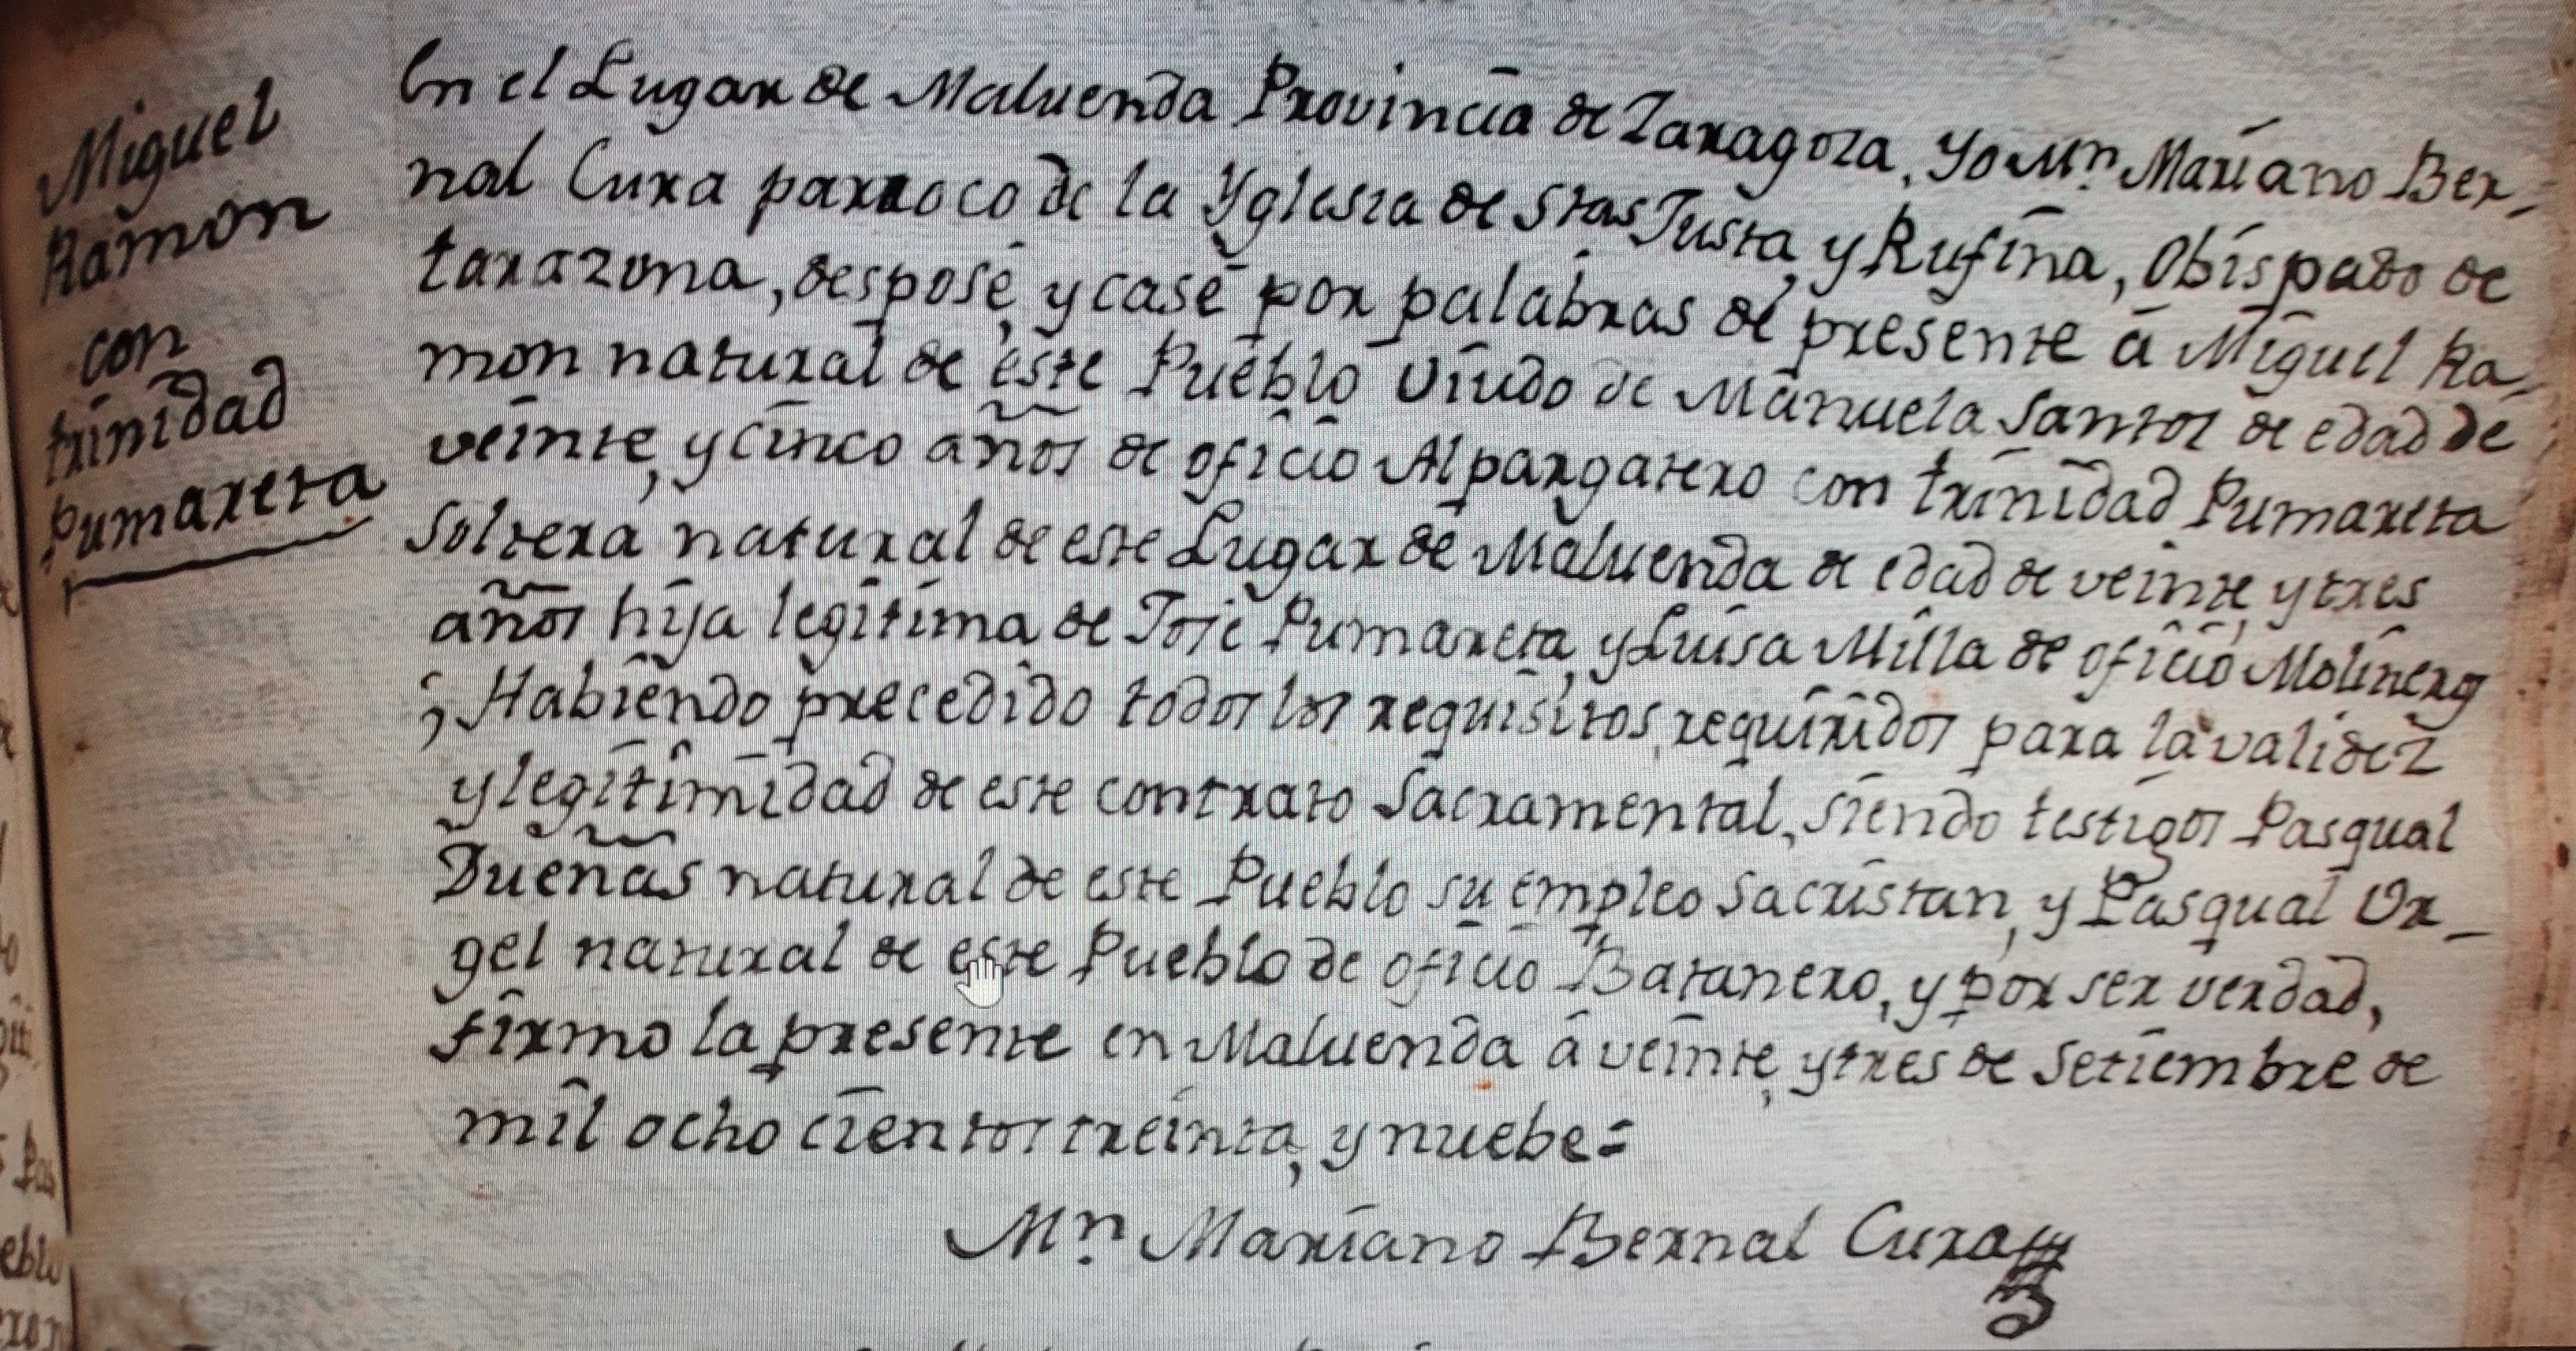 Miguel
Ramon
con
trinidad
Pumareta
En el Lugar de Maluenda Provincia de Zaragoza, Yo Mn. Mariano Ber-
nal Cura parroco de la Yglesia de Stas Justa, y Rufina, Obispado de
tarazona, desposé, y casé por palabras de presente á Miguel Ra-
mon natural de este Pueblo Viudo de Manuela Santos de edad de
veinte, y cinco años de oficio Alpargatero con trinidad Pumareta
Soltera natural de este Lugar de Maluenda de edad de veinte, y tres
años hija legitima de José Pumareta, y Luisa Milla de oficio Molinero
; Habiendo precedido todos los requisitos requiridos para la validez
y legitimidad de este contrato Sacramental, siendo testigos Pasqual
Dueñas natural de este Pueblo su empleo Sacristan, y Pasqual Or-
gel natural de este Pueblo de oficio Batanero, y por ser verdad,
firmo la presente en Maluenda á veinte, y tres de Setiembre de
mil ocho cientos treinta, y nuebe=
Mn. Mariano Bernal Cura